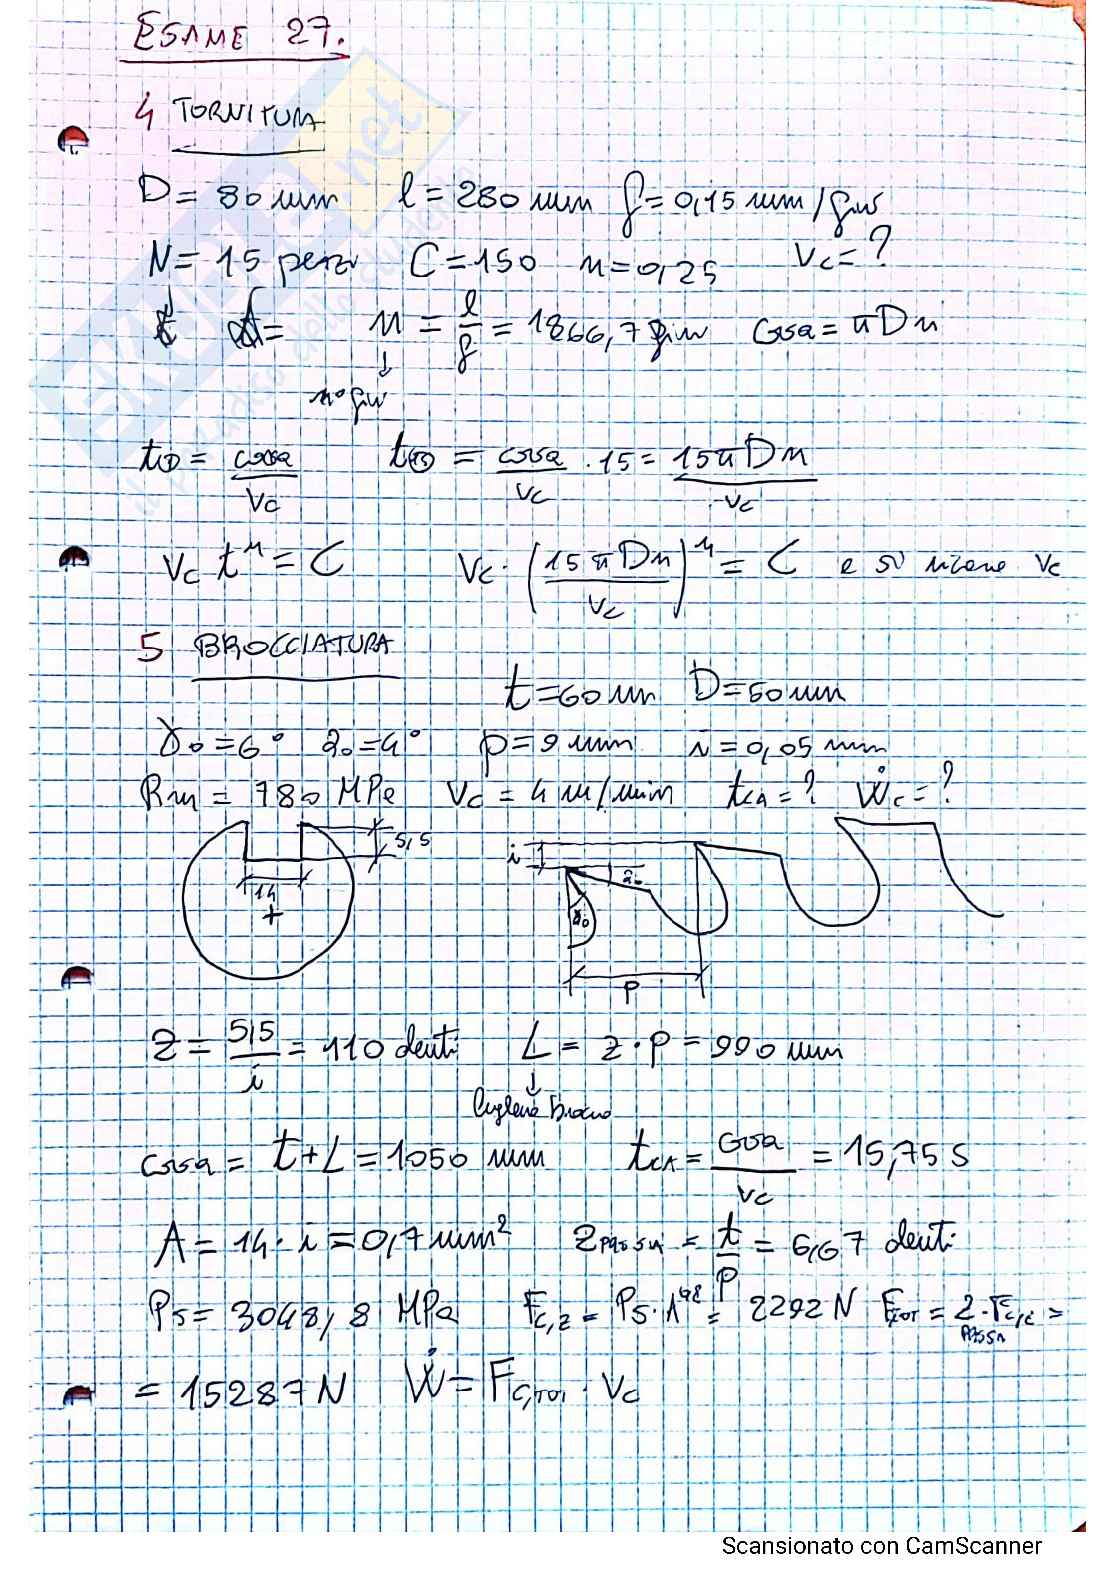 ESAME 27.
4 TORNITURA
D = 80 mm l = 280 mm f = 0,15 mm/giro
N = 15 pezzi C = 150 n = 0,25 Vc = ?
n = l/f = 1866,7 giri corsa = πDn
n° giri
t① = corsa/Vc t⑮ = corsa/Vc · 15 = 15πDn/Vc
Vc t^n = C Vc · (15πDn/Vc)^n = C e si ricava Vc
5 BROCCIATURA
t = 60 mm D = 50 mm
γo = 6° αo = 4° p = 9 mm i = 0,05 mm
Rm = 780 MPa Vc = 4 m/min tca = ? Ẇc = ?
5,5
i αo
14
γo
p
Z = 5,5/i = 110 denti L = z · p = 990 mm
corsa = t + L = 1050 mm tcA = corsa/Vc = 15,75 s
A = 14 · i = 0,7 mm² = t/p = 6,67 denti
Ps = 3048,8 MPa Fc,z = Ps · A = 2292 N
= 15287 N Ẇ = Fc,TOT · Vc
Scansionato con CamScanner